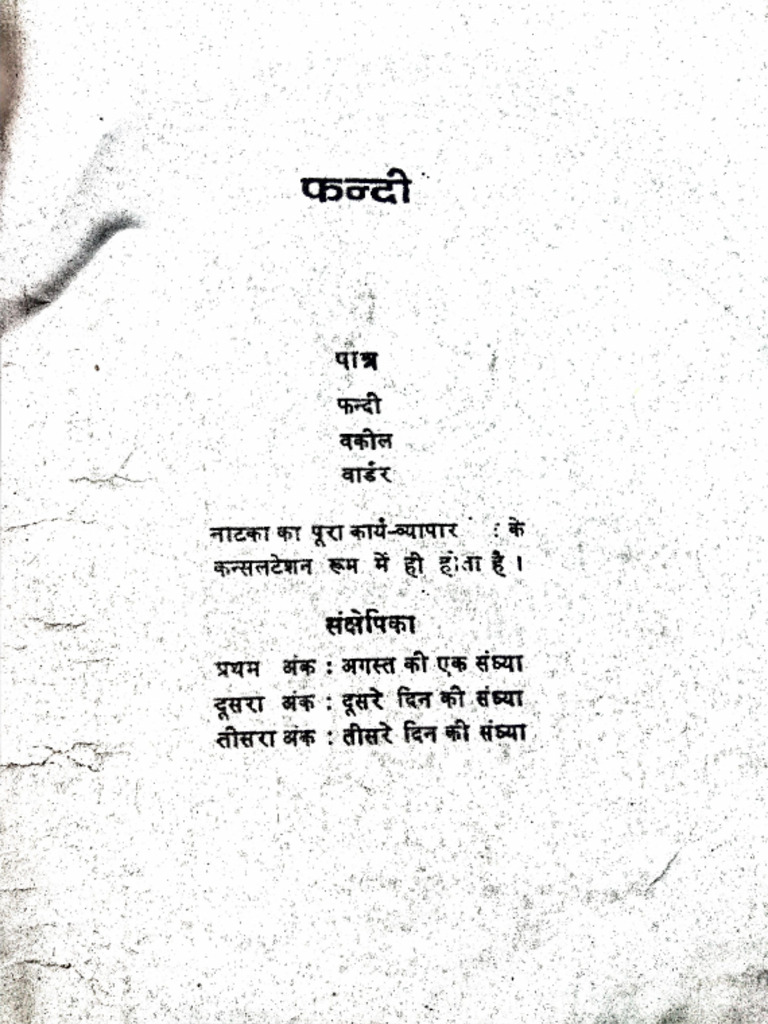 फन्दी
पात्र
फन्दी
वकील
वार्डर
नाटका का पूरा कार्य-व्यापार : के
कन्सलटेशन रूम में ही होता है ।
संक्षेपिका
प्रथम अंक : अगस्त की एक संध्या
दूसरा अंक : दूसरे दिन की संध्या
तीसरा अंक : तीसरे दिन की संध्या